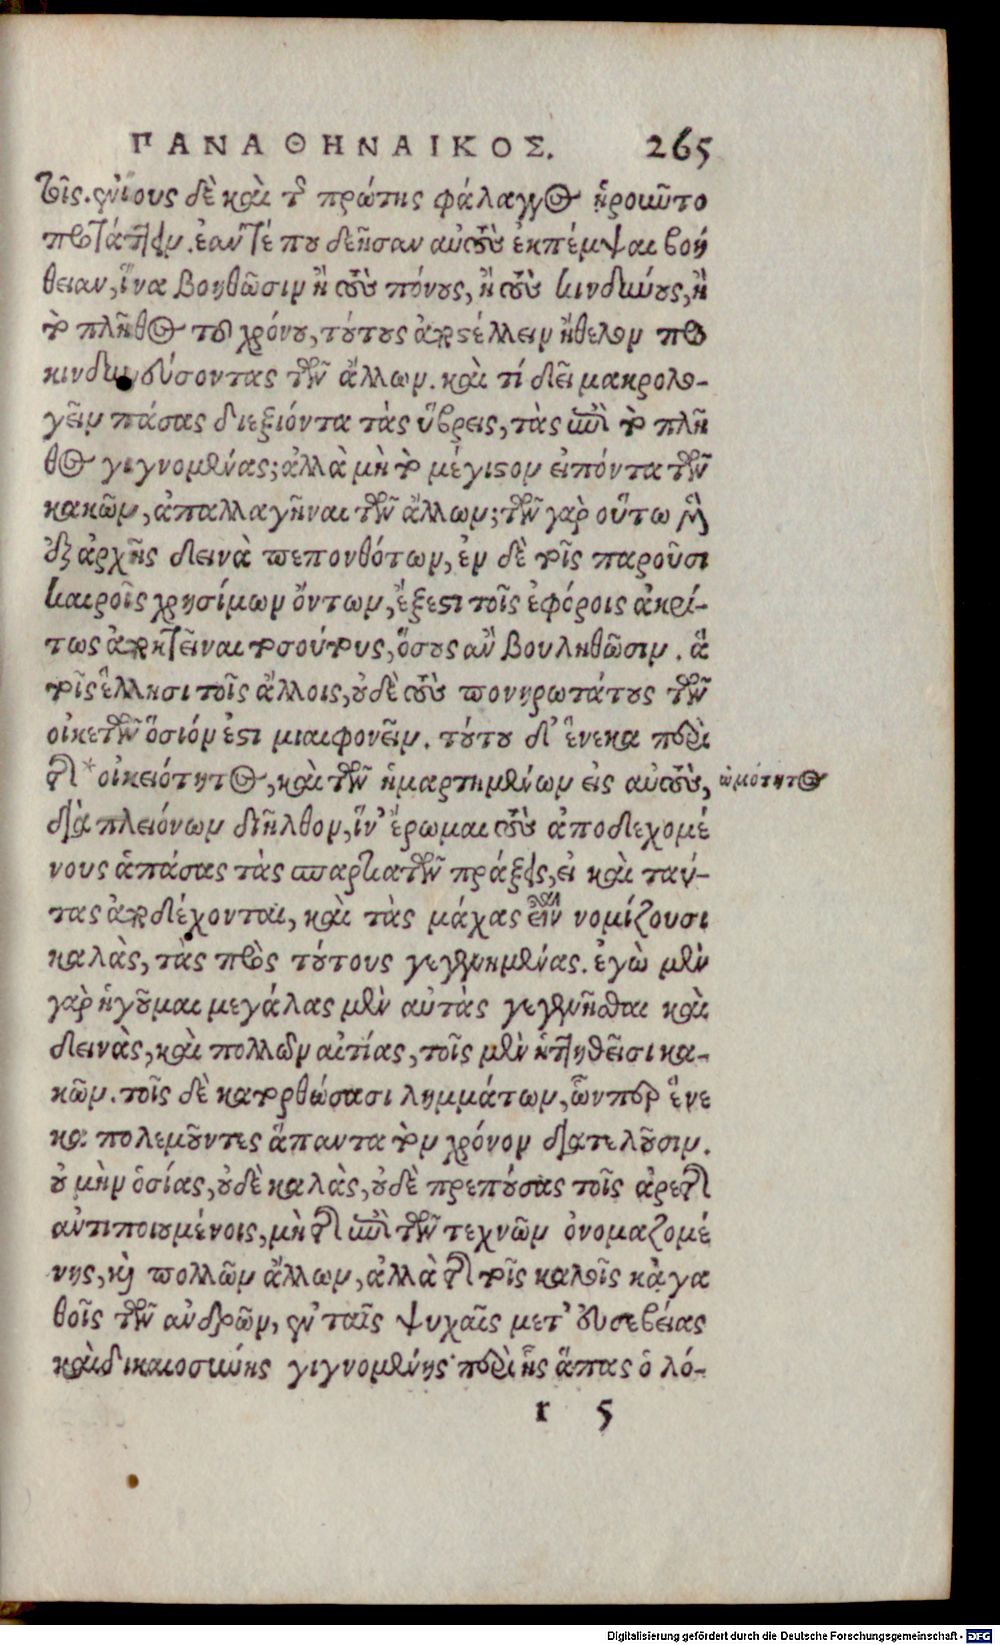 ΠΑΝΑΘΗΝΑΙΚΟΣ. 265
τοῖς. ἐνίους δὲ καὶ τῆς πρώτης φάλαγγος ἠροῦντο
προστάττειν. ἐάν τέ που δεῆσαν αὐτοὺς ἐκπέμψαι βοή
θειαν, ἵνα βοηθῶσιν ἢ τοὺς πόνους, ἢ τοὺς κινδύνους, ἢ
τὸ πλῆθος τοῦ χρόνου, τούτους ἀποστέλλειν ἤθελον προ
κινδυνεύσοντας τῶν ἄλλων. καὶ τί δεῖ μακρολο-
γεῖν πάσας διεξιόντα τὰς ὕβρεις, τὰς περὶ τὸ πλῆ
θος γιγνομένας; ἀλλὰ μὴ τὸ μέγιστον εἰπόντα τῶν
κακῶν, ἀπαλλαγῆναι τῶν ἄλλων; τῶν γὰρ οὕτω μὲν
ἐξ ἀρχῆς δεινὰ πεπονθότων, ἐν δὲ τοῖς παροῦσι
καιροῖς χρησίμων ὄντων, ἔξεστι τοῖς ἐφόροις ἀκρί-
τως ἀποκτεῖναι τοσούτους, ὅσους ἂν βουληθῶσιν. ἃ
τοῖς ἕλλησι τοῖς ἄλλοις, οὐδὲ τοὺς πονηρωτάτους τῶν
οἰκετῶν ὅσιόν ἐστι μιαιφονεῖν. τούτου δ' ἕνεκα περὶ
τῆς *οἰκειότητος, καὶ τῶν ἡμαρτημένων εἰς αὐτοὺς, ὠμότητος
διὰ πλειόνων διῆλθον, ἵν' ἔρωμαι τοὺς ἀποδεχομέ
νους ἁπάσας τὰς σπαρτιατῶν πράξεις, εἰ καὶ ταύ-
τας ἀποδέχονται, καὶ τὰς μάχας εἶναι νομίζουσι
καλὰς, τὰς πρὸς τούτους γεγενημένας. ἐγὼ μὲν
γὰρ ἡγοῦμαι μεγάλας μὲν αὐτὰς γεγενῆσθαι καὶ
δεινὰς, καὶ πολλῶν αἰτίας, τοῖς μὲν ἡττηθεῖσι κα-
κῶν. τοῖς δὲ κατορθώσασι λημμάτων, ὧνπερ ἕνε
κα πολεμοῦντες ἅπαντα τὸν χρόνον διατελοῦσιν.
οὐ μὴν ὁσίας, οὐδὲ καλὰς, οὐδὲ πρεπούσας τοῖς ἀρετῆς
ἀντιποιουμένοις, μὴ τῆς ἐπὶ τῶν τεχνῶν ὀνομαζομέ
νης, καὶ πολλῶν ἄλλων, ἀλλὰ τῆς τοῖς καλοῖς κἀγα
θοῖς τῶν ἀνδρῶν, ἐν ταῖς ψυχαῖς μετ' εὐσεβείας
καὶ δικαιοσύνης γιγνομένης· περὶ ἧς ἅπας ὁ λό-
r 5
Digitalisierung gefördert durch die Deutsche Forschungsgemeinschaft - DFG